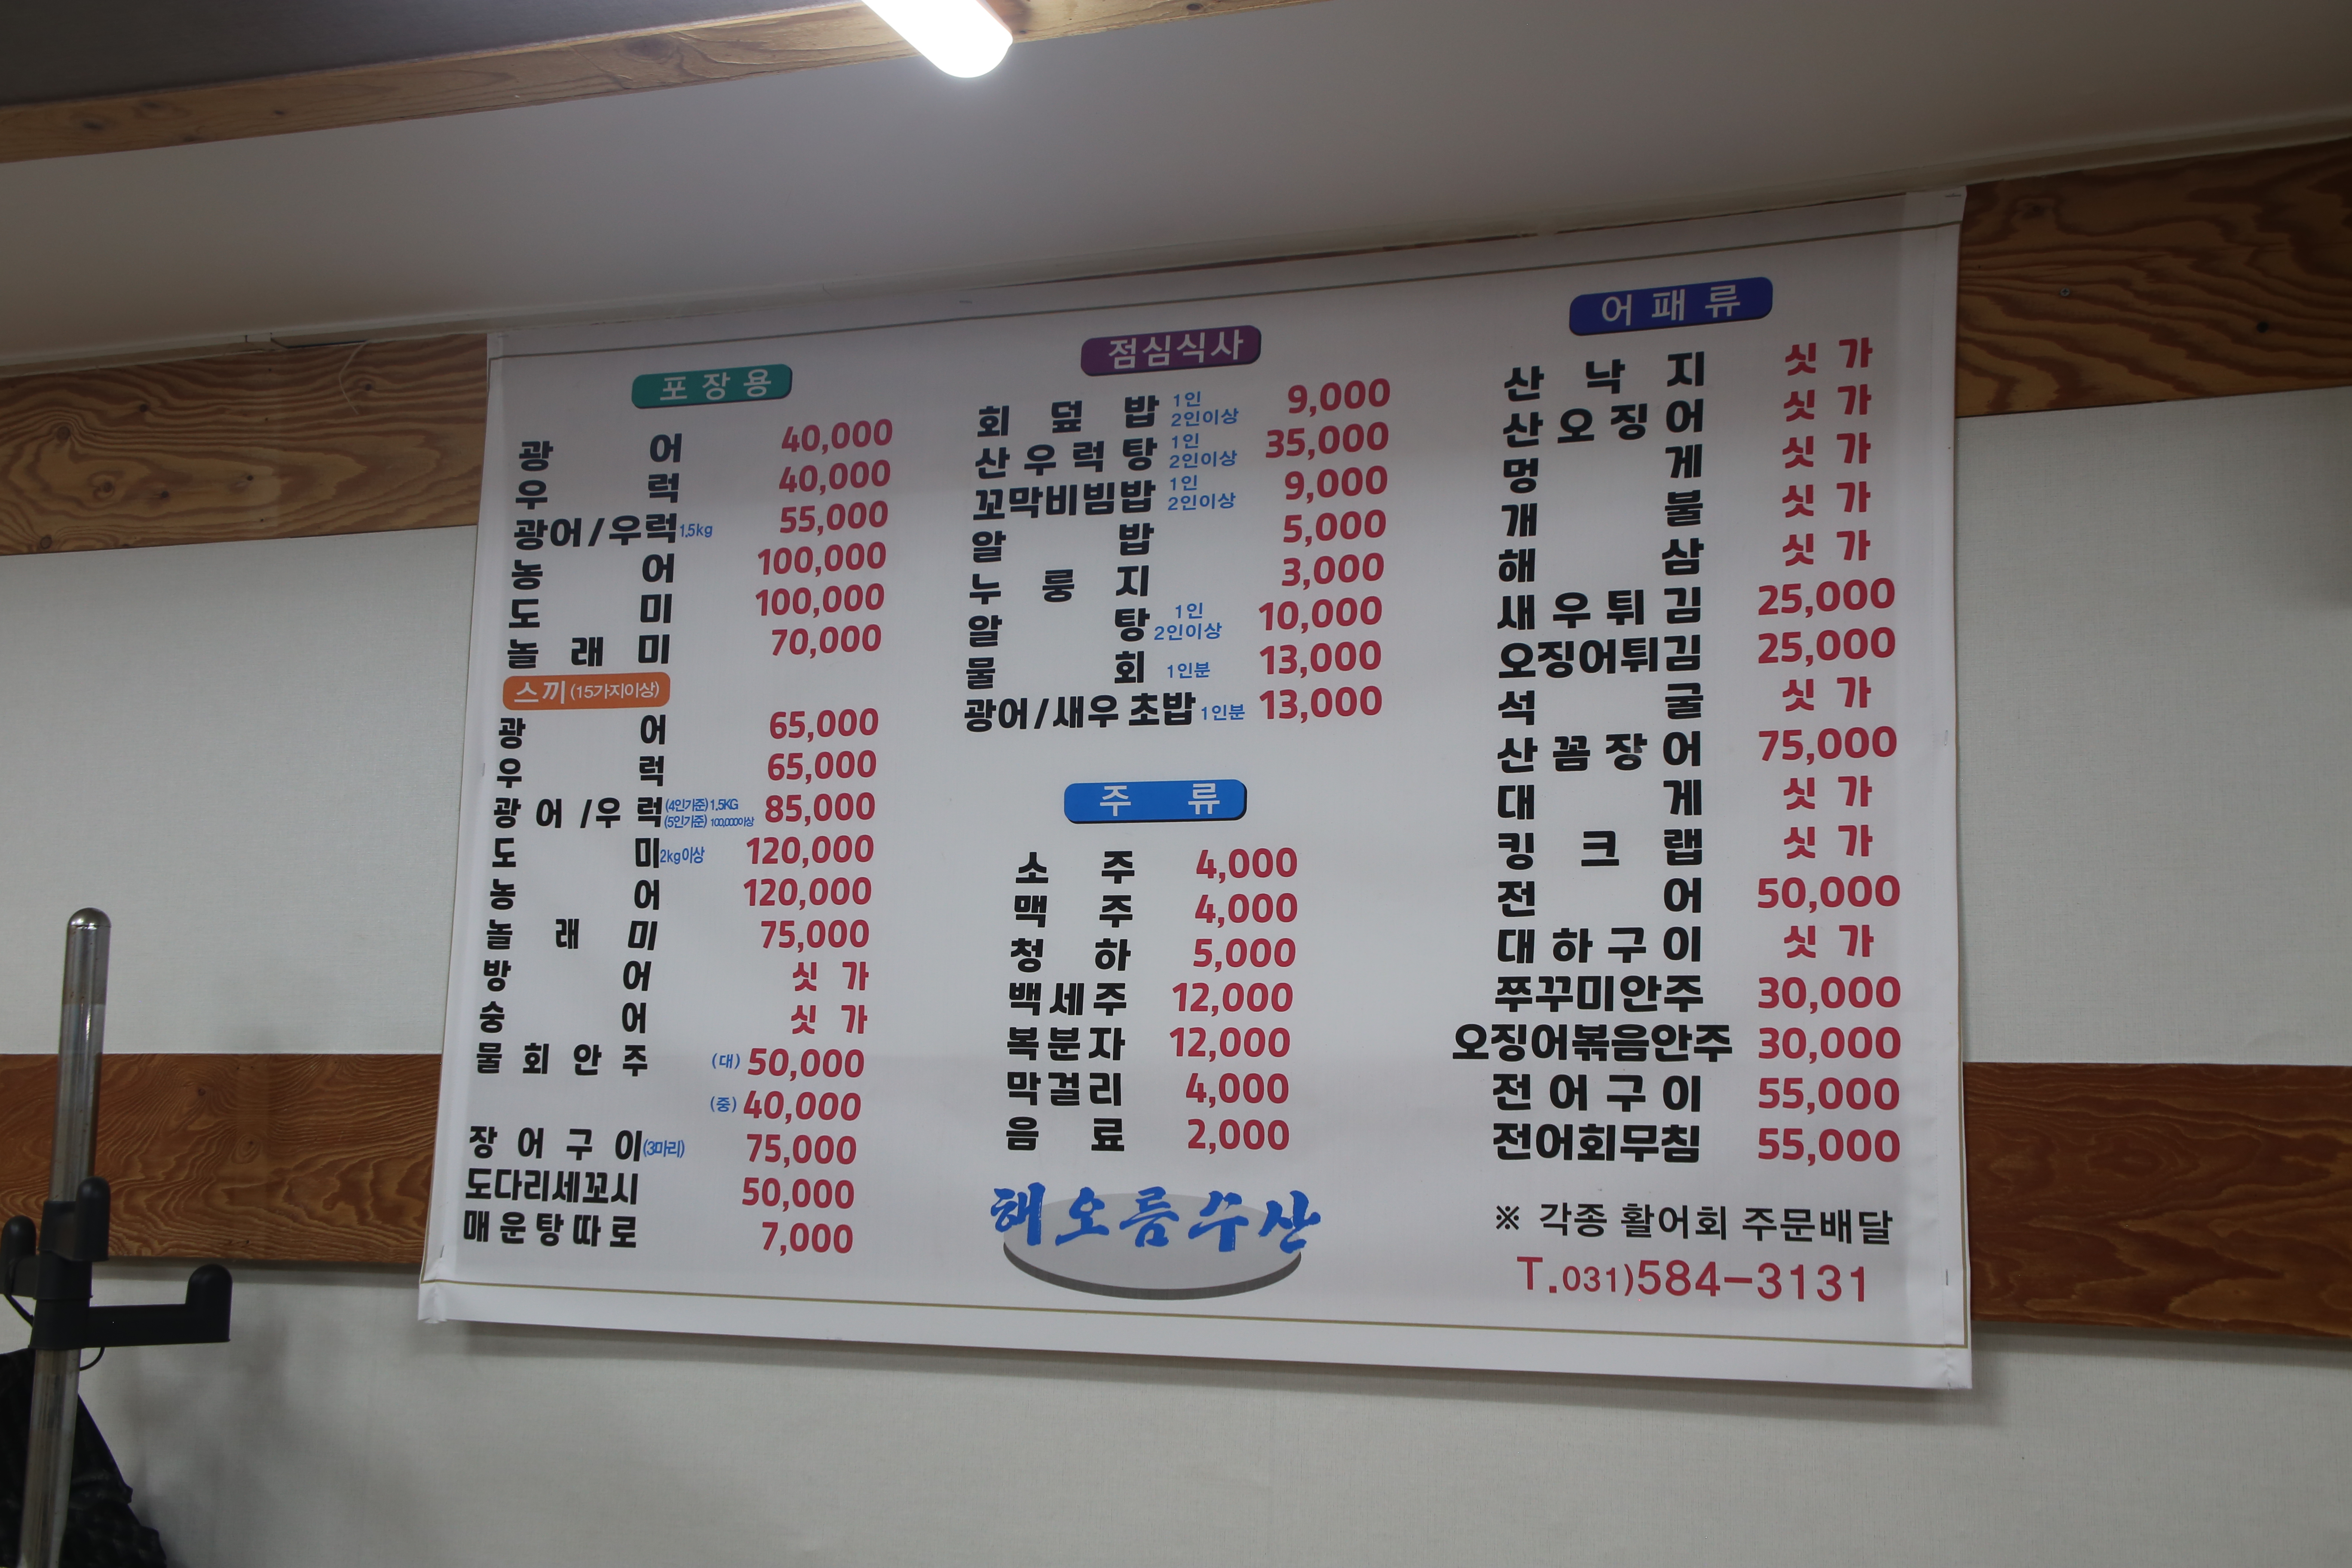 포장용
광어 40,000
우럭 40,000
광어/우럭 1.5kg 55,000
농어 100,000
도미 100,000
놀래미 70,000
스끼 (15가지이상)
광어 65,000
우럭 65,000
광어/우럭 (4인기준) 1.5KG 85,000
(5인기준) 100,000이상
도미 2kg이상 120,000
농어 120,000
놀래미 75,000
방어 싯가
숭어 싯가
물회안주 (대) 50,000
(중) 40,000
장어구이 (3마리) 75,000
도다리세꼬시 50,000
매운탕따로 7,000
점심식사
회덮밥 1인 9,000
2인이상
산우럭탕 1인 35,000
2인이상
꼬막비빔밥 1인 9,000
2인이상
알밥 5,000
누룽지 3,000
알탕 1인 10,000
2인이상
물회 1인분 13,000
광어/새우 초밥 1인분 13,000
주류
소주 4,000
맥주 4,000
청하 5,000
백세주 12,000
복분자 12,000
막걸리 4,000
음료 2,000
해오름수산
어패류
산낙지 싯가
산오징어 싯가
멍게 싯가
개불 싯가
해삼 싯가
새우튀김 25,000
오징어튀김 25,000
석굴 싯가
산꼼장어 75,000
대게 싯가
킹크랩 싯가
전어 50,000
대하구이 싯가
쭈꾸미안주 30,000
오징어볶음안주 30,000
전어구이 55,000
전어회무침 55,000
※ 각종 활어회 주문배달
T.031)584-3131